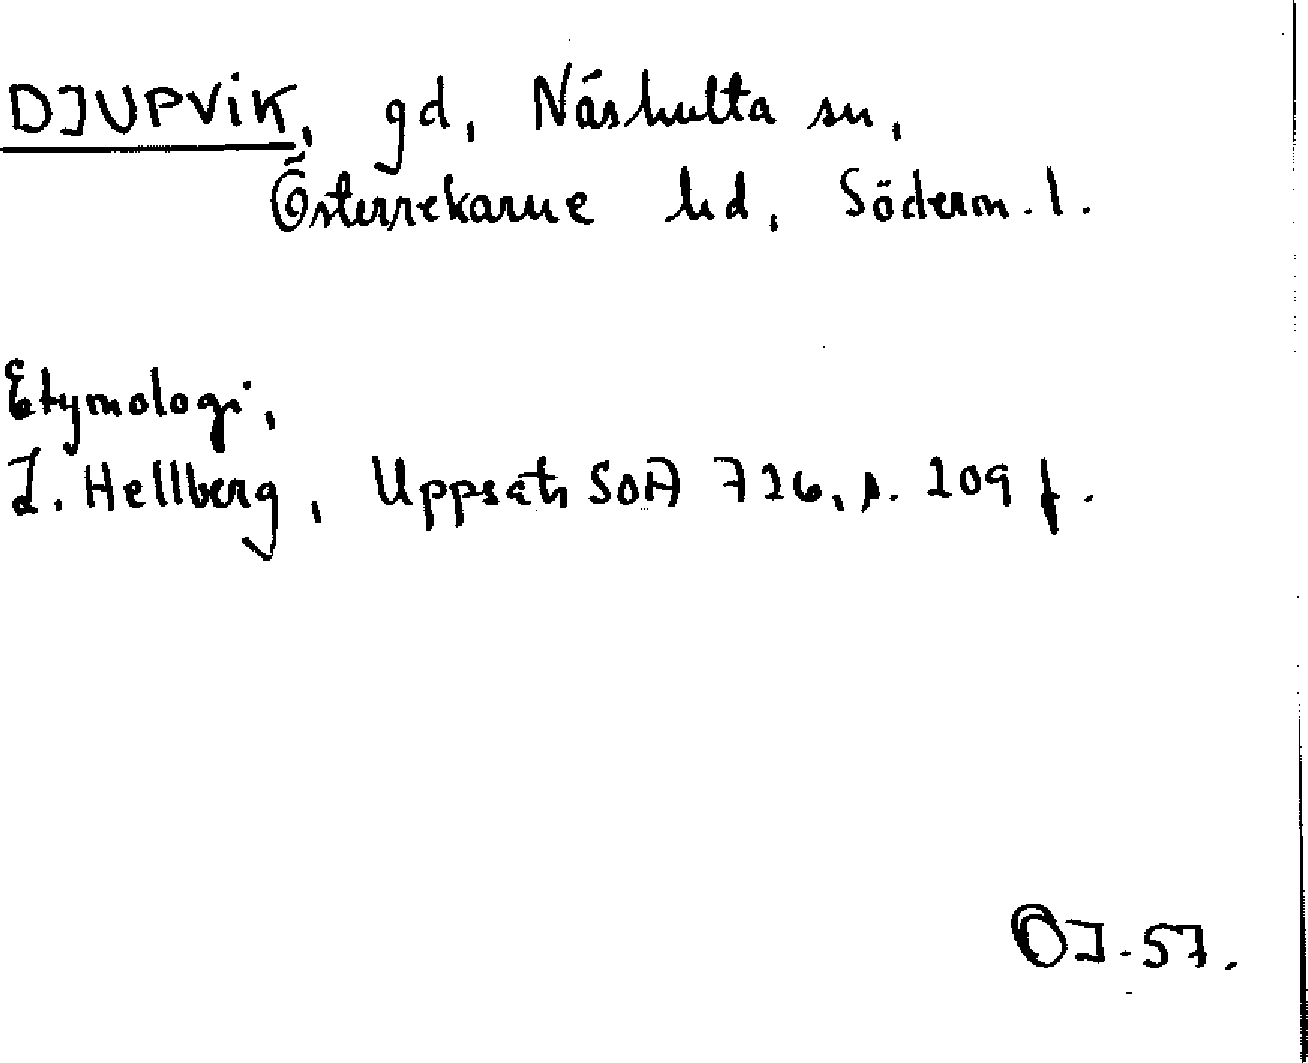 DJUPVIK, gd, Näshulta sn,
Österrekarne hd, Söderm. l.
Etymologi,
L. Hellberg, Uppsats SOA 726, s. 209 f.
OJ-57.